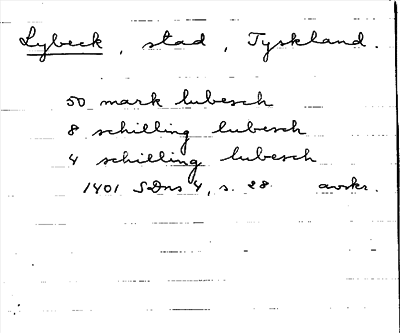 Lybeck, stad, Tyskland.
50 mark lubesch
8 schilling lubesch
4 schilling lubesch
1401 SDns 4, s. 28 avskr.